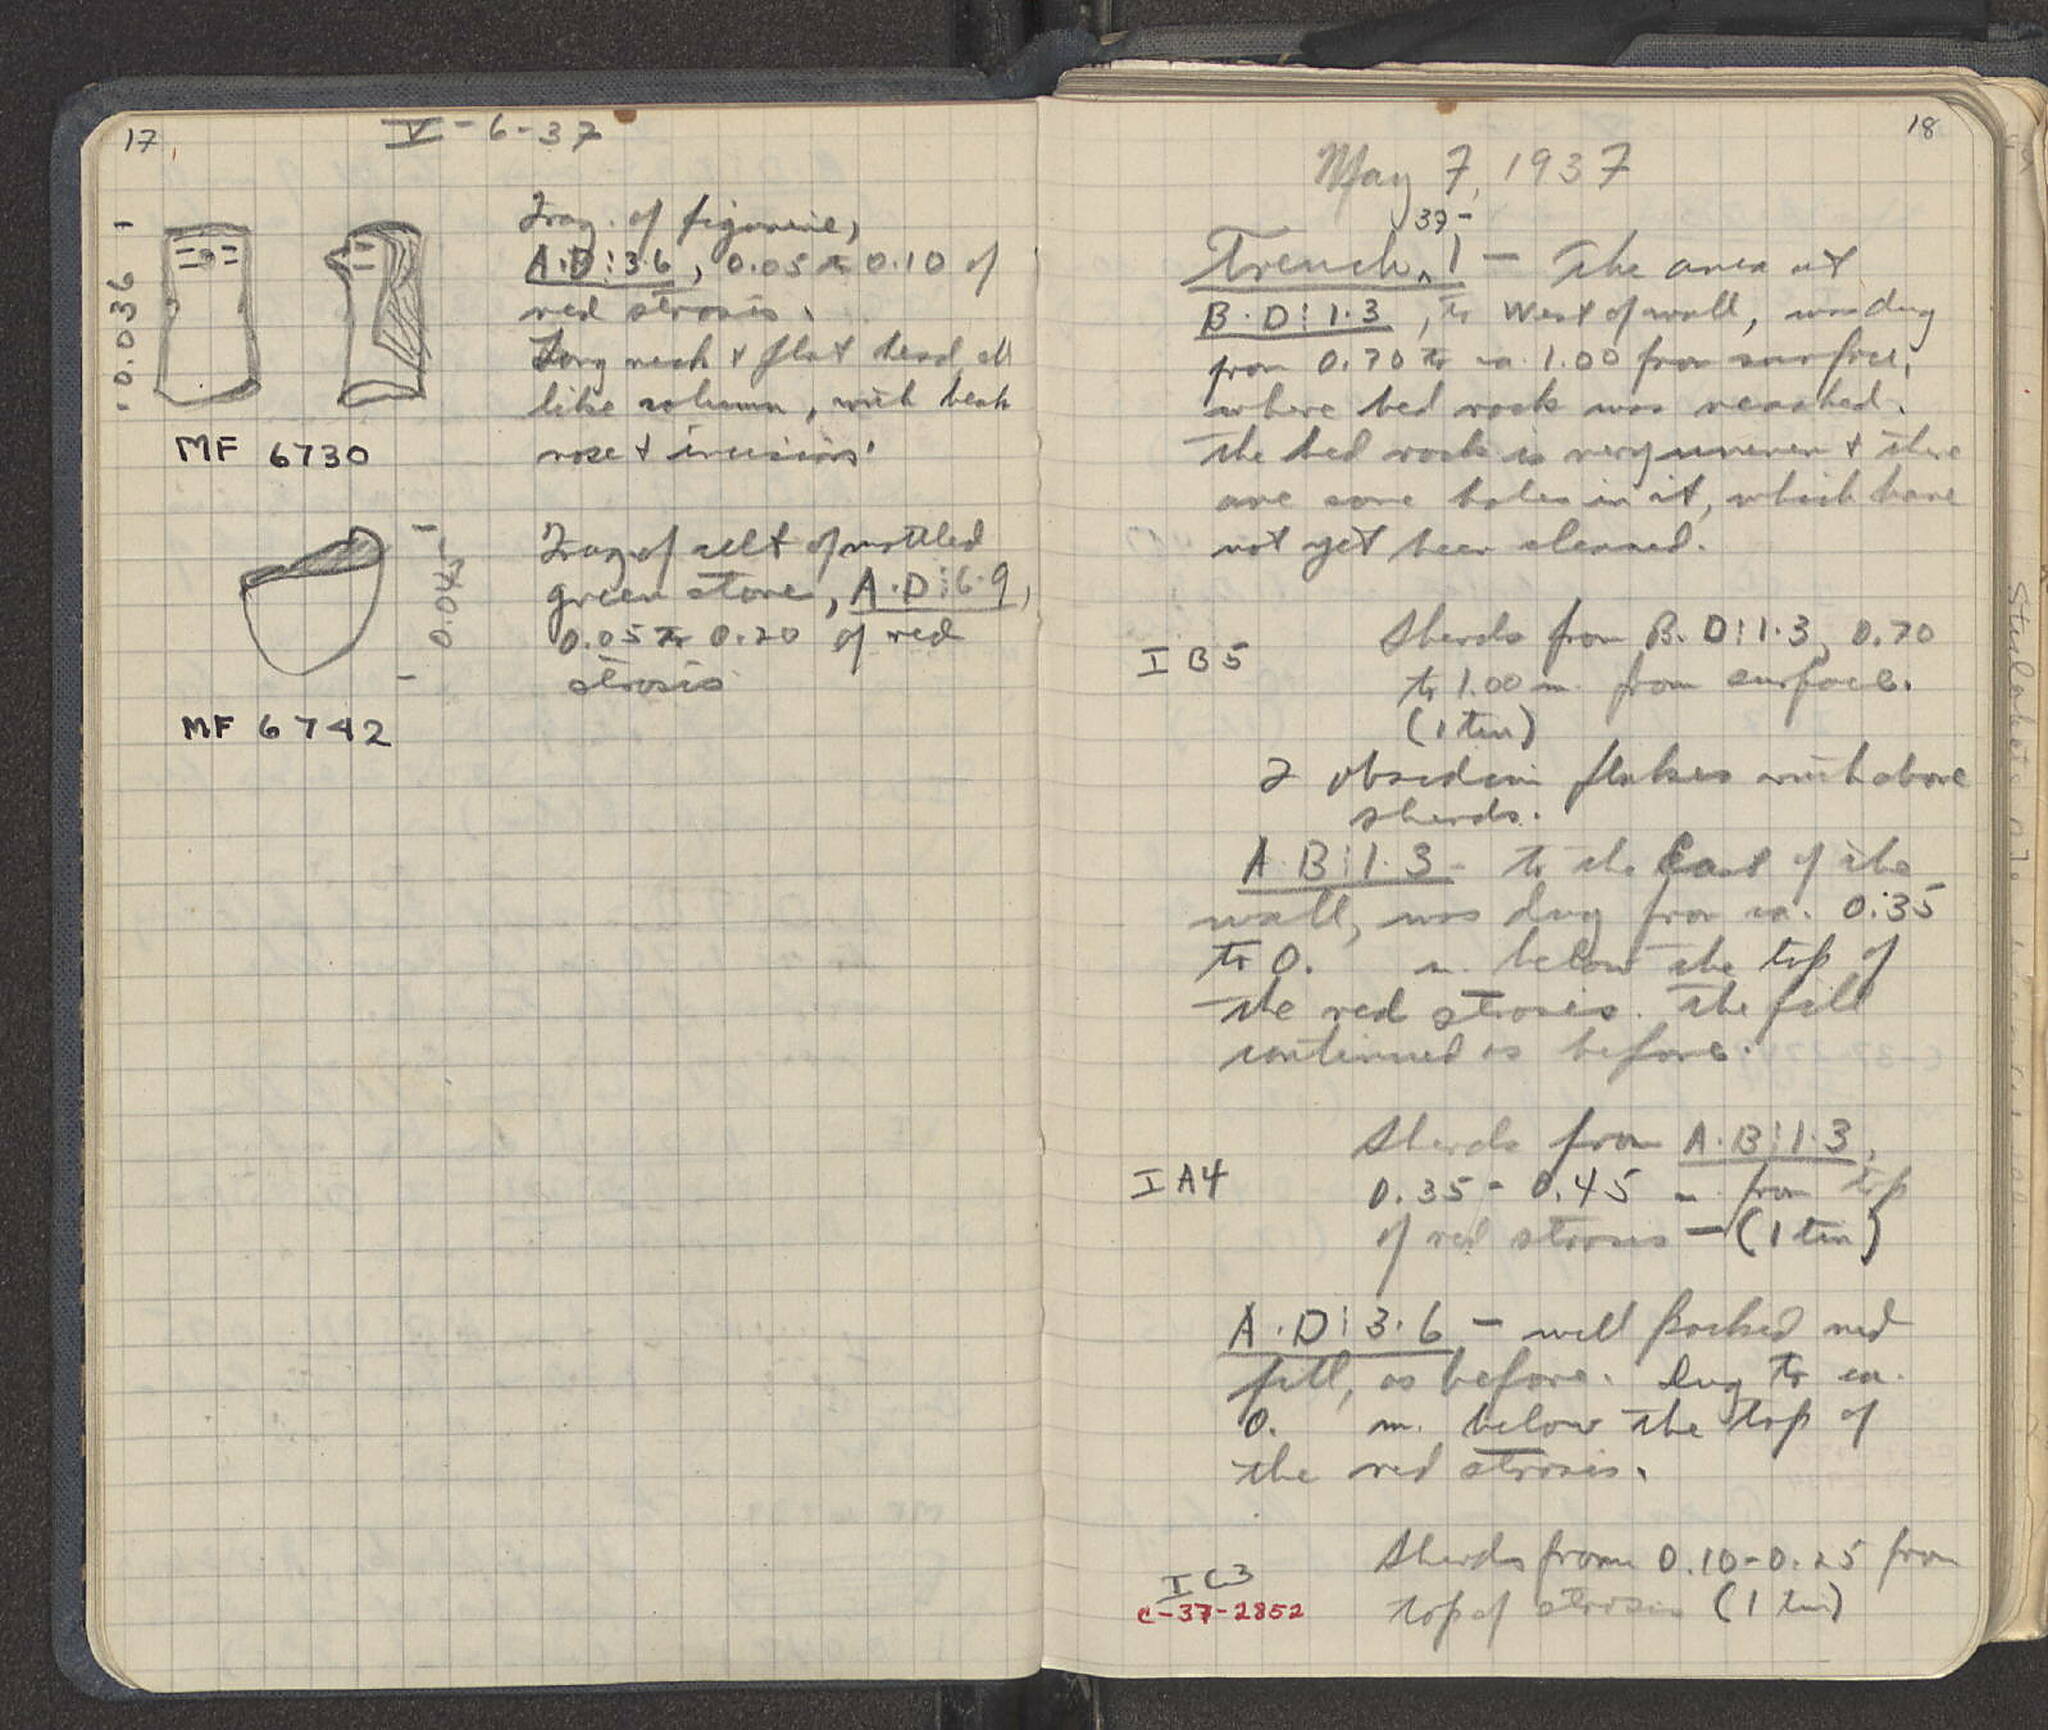 17
V-6-37
Frag. of figurine,
A·D:3·6, 0.05 to 0.10 of
red strosis.
Long neck + flat head all
like column, with beak
nose + incisions.
0.036
MF 6730
Frag. of celt of mottled
green stone, A·D:6·9,
0.05 to 0.20 of red
strosis
MF 6742
18
May 7, 1937
37-
Trench 1 — The area at
B·D:1·3, to West of wall, was dug
from 0.70 to ca. 1.00 from surface,
where bed rock was reached.
The bed rock is very uneven + there
are some holes in it, which have
not yet been cleaned.
I B5
Sherds from B·D:1·3, 0.70
to 1.00 m. from surface.
(1 tin)
2 obsidian flakes with above
sherds.
A·B:1·3 - to the East of the
wall, was dug from ca. 0.35
to 0. m. below the top of
the red strosis. The fill
continued as before.
I A4
Sherds from A·B:1·3,
0.35 - 0.45 m. from top
of red strosis — (1 tin)
A·D:3·6 — well packed red
fill, as before. Dug to ca.
0. m. below the top of
the red strosis.
I C3
C-37-2852
Sherds from 0.10-0.25 from
top of strosis (1 tin)